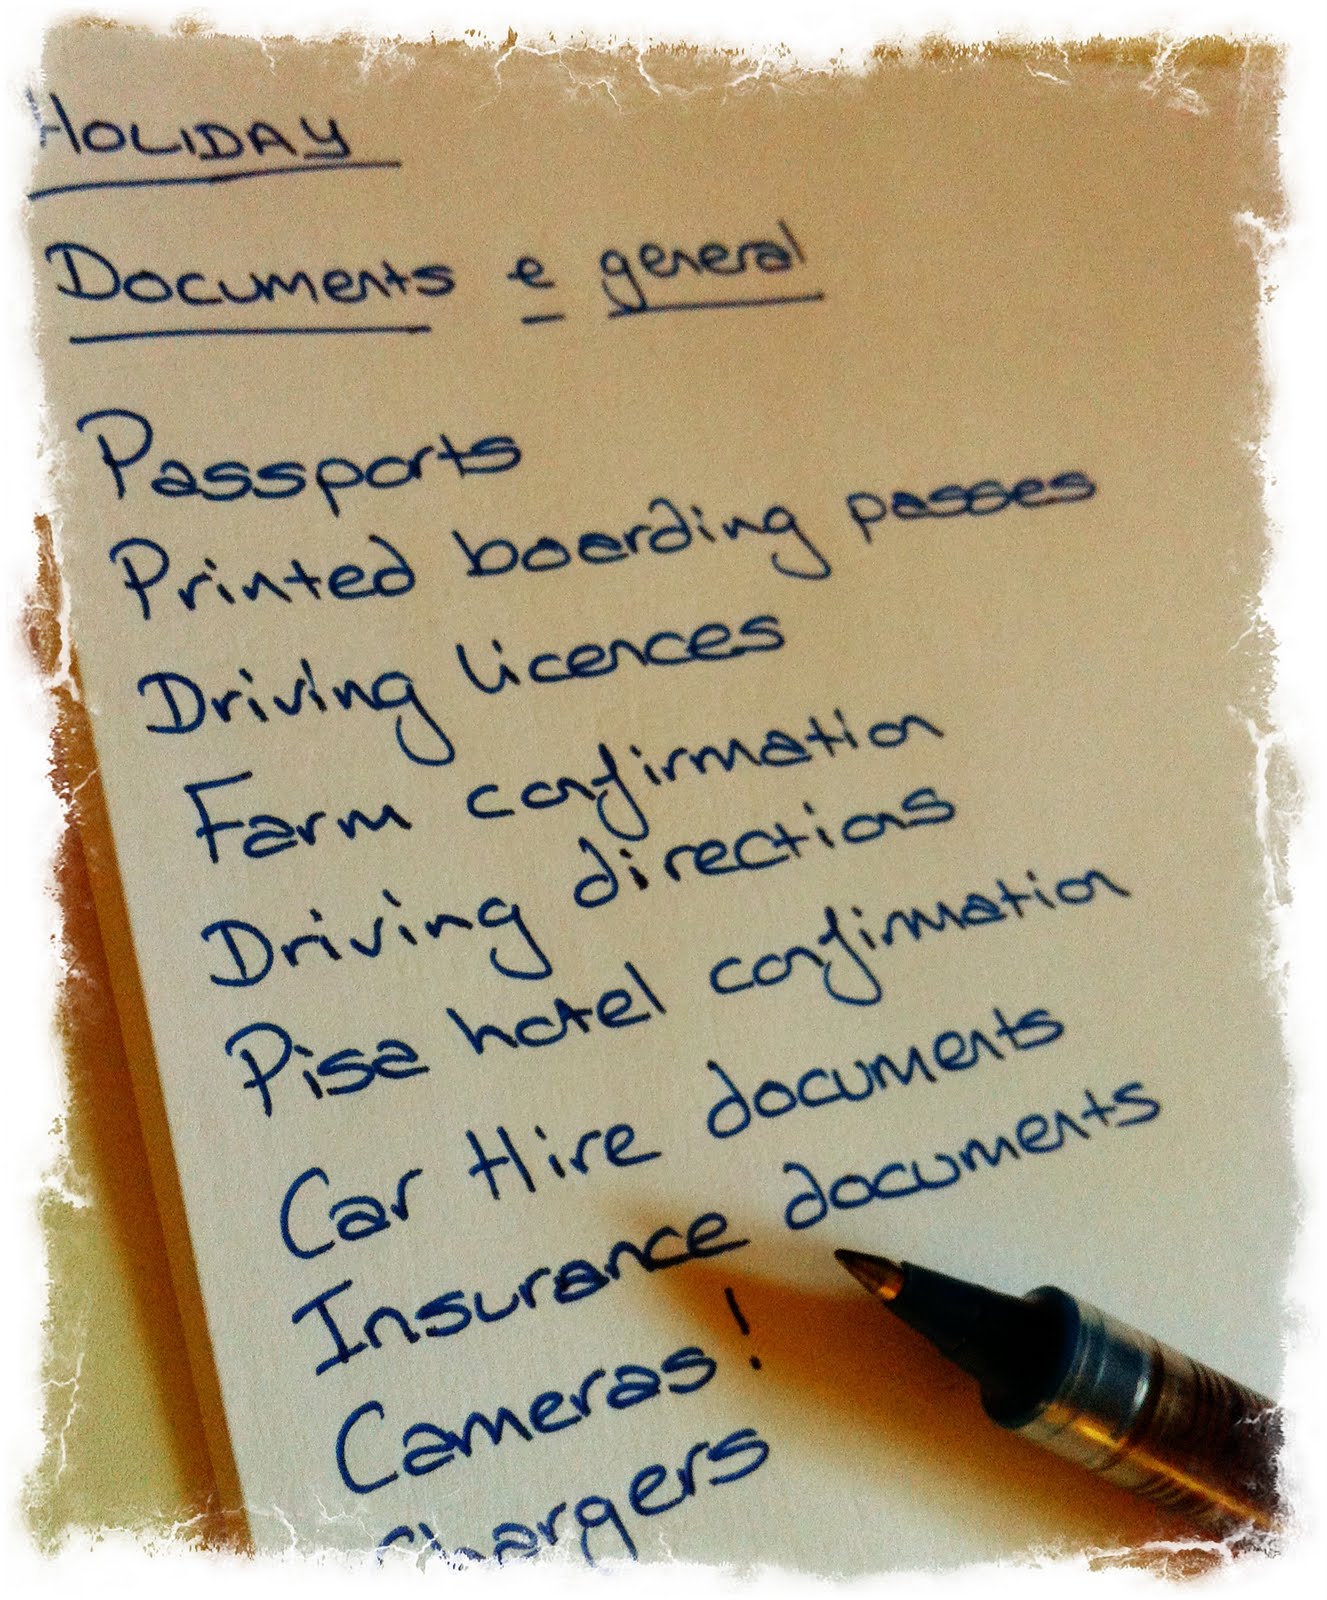 HOLIDAY
Documents e general
Passports
Printed boarding passes
Driving licences
Farm confirmation
Driving directions
Pisa hotel confirmation
Car Hire documents
Insurance documents
Cameras!
Chargers